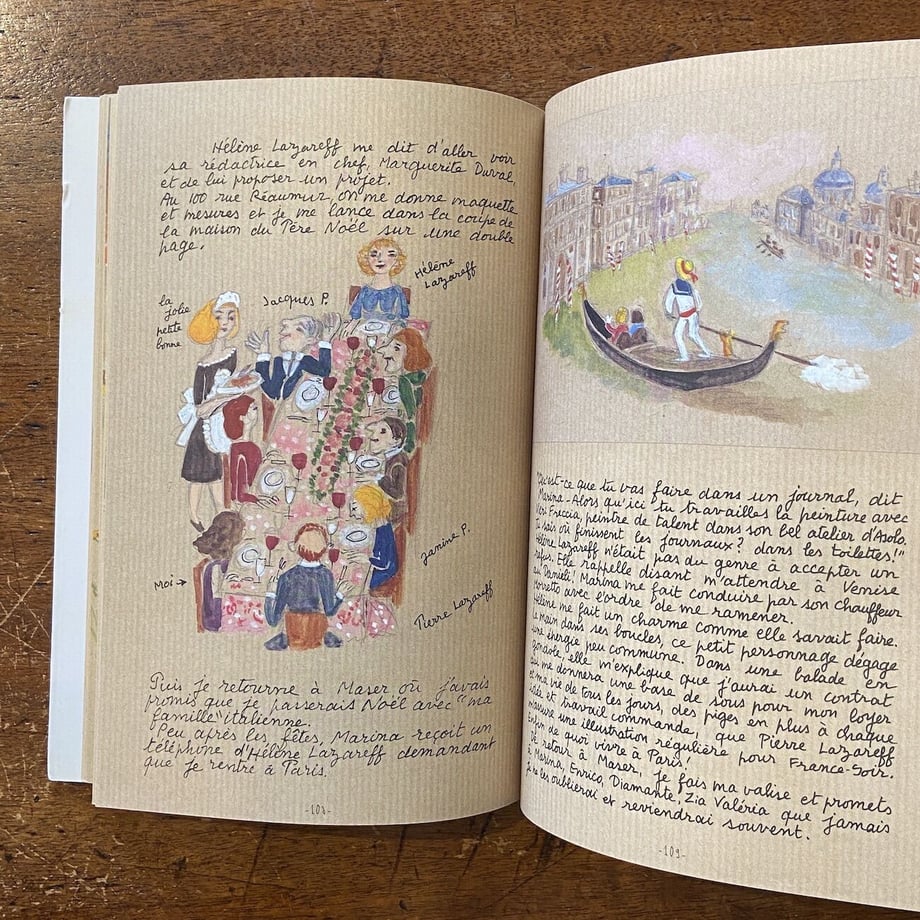 Hélène Lazareff me dit d'aller voir
sa rédactrice en chef, Marguerite Duval,
et de lui proposer un projet.
Au 100 rue Réaumur, on me donne maquette
et mesures et je me lance dans la coupe de
la maison du Père Noël sur une double
page.
Hélène
Lazareff
la
jolie
petite
bonne
Jacques P.
Janine P.
Moi →
Pierre Lazareff
Puis je retourne à Maser où j'avais
promis que je passerais Noël avec "ma
famille" italienne.
Peu après les fêtes, Marina reçoit un
téléphone d'Hélène Lazareff demandant
que je rentre à Paris.
-108-
"Qu'est-ce que tu vas faire dans un journal, dit
Marina - Alors qu'ici tu travailles la peinture avec
Neri Freccia, peintre de talent dans son bel atelier d'Asolo.
Tu sais où finissent les journaux? dans les toilettes!"
Hélène Lazareff n'était pas du genre à accepter un
refus. Elle rappelle disant m'attendre à Venise
au "Daniéli". Marina me fait conduire par son chauffeur
Moretto avec l'ordre de me ramener.
Hélène me fait un charme comme elle savait faire.
La main dans ses boucles, ce petit personnage dégage
une énergie peu commune. Dans une balade en
gondole, elle m'explique que j'aurai un contrat
qui me donnera une base de sous pour mon loyer
et ma vie de tous les jours, des piges en plus à chaque
idée et travail commandé, que Pierre Lazareff
m'assure une illustration régulière pour France-Soir.
Enfin de quoi vivre à Paris!
De retour à Maser, je fais ma valise et promets
à Marina, Enrico, Diamante, Zia Valéria que jamais
je ne les oublierai et reviendrai souvent.
-109-